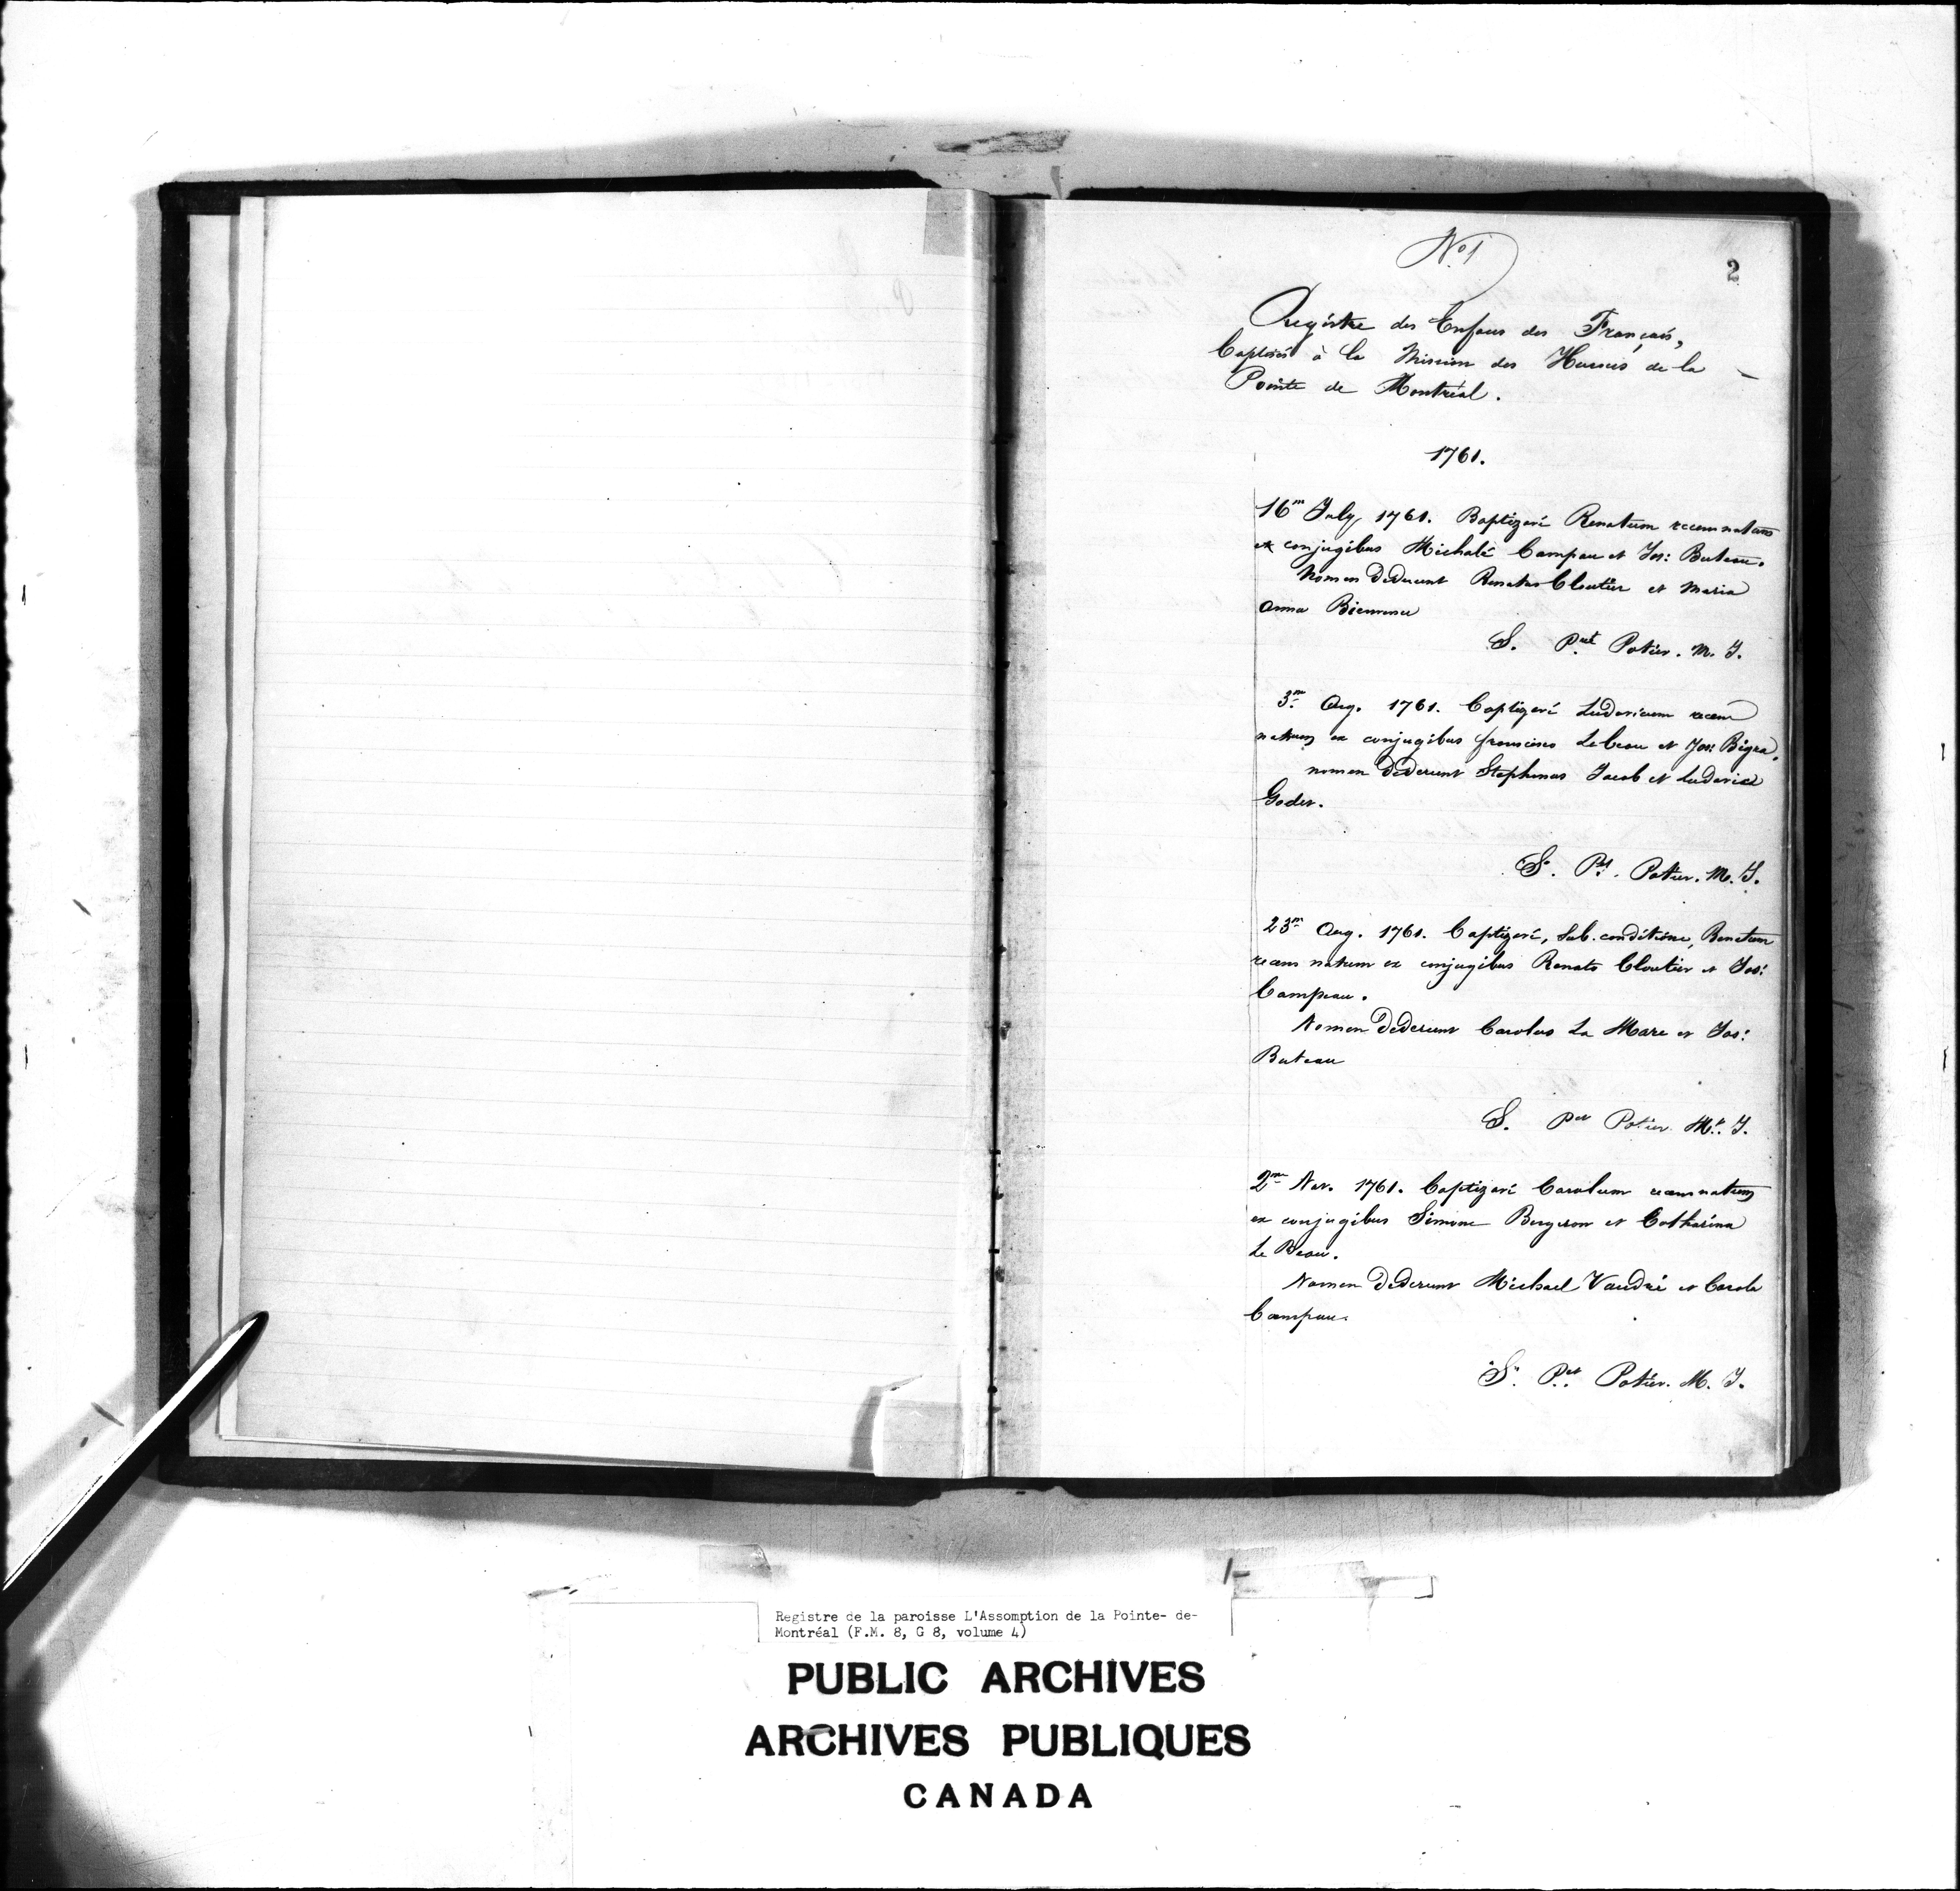 No 1
2
Registre des Enfans des Français,
baptisés à la Mission des Hurons de la
Pointe de Montréal.
1761.
16m July 1761. Baptizavi Renatum recem natum
ex conjugibus Michale Campau et Jos: Buteau.
Nomen dederunt Renatus Cloutier et Maria
Anna Bienvenu
S. Pet Potier. M. J.
3m Aug. 1761. baptizavi Ludovicum recem
natum ex conjugibus francisco Lebeau et Jos: Bigra,
nomen dederunt Stephanus Jacob et Ludovica
Godet.
S. Pt. Potier. M. J.
23m Aug. 1761. baptizavi, sub. conditione, Renatum
recem natum ex conjugibus Renato Cloutier et Jos:
Campeau.
Nomen dederunt Carolus La Mare et Jos:
Buteau
S. Pet Potier Mr. J.
2m Nov. 1761. baptizavi Carolum recem natum
ex conjugibus Simone Bergeron et Catharina
Le Beau.
Nomen dederunt Michael Vaudri et Carola
Campau.
S. Pet Potier. M. J.
Registre de la paroisse L'Assomption de la Pointe- de-
Montréal (F.M. 8, G 8, volume 4)
PUBLIC ARCHIVES
ARCHIVES PUBLIQUES
CANADA